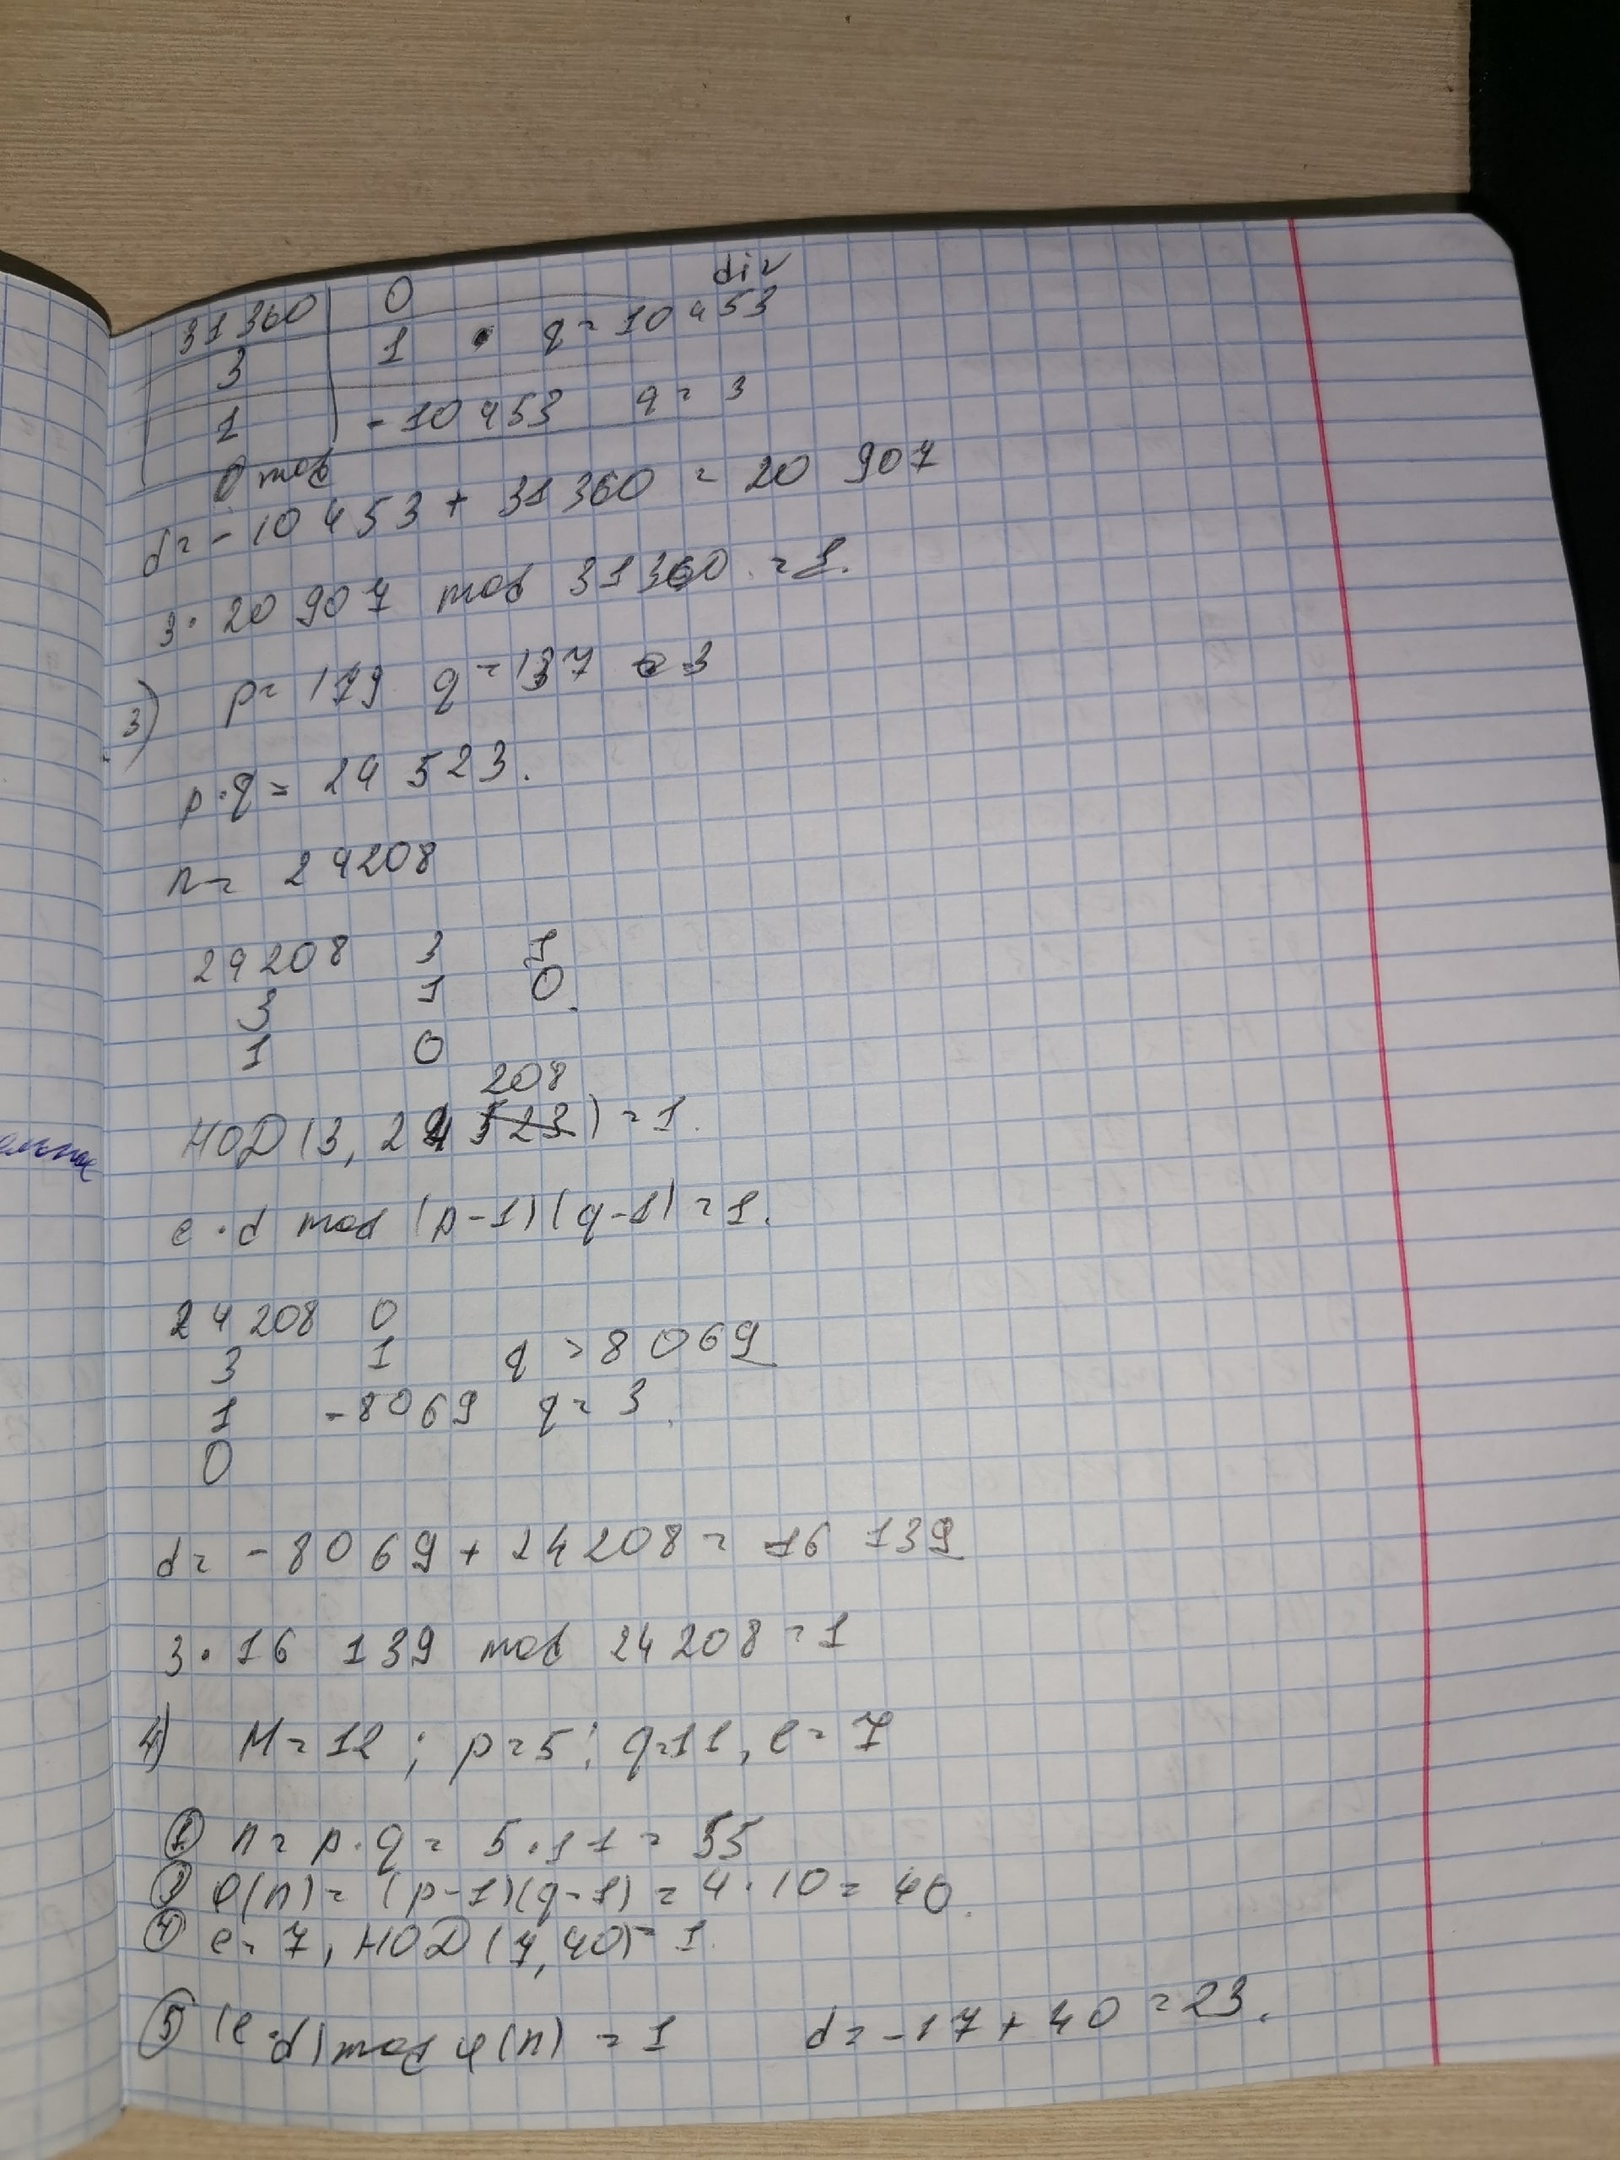 31360 0 div
3 1 q = 10453
1 -10453 q = 3
0 mod
d = -10453 + 31360 = 20 907
3 · 20 907 mod 31360 = 1.
3) p = 179 q = 137 e = 3
p · q = 24 523.
n = 24208
24208 3 1
3 1 0.
1 0
208
НОД (3, 24 523) = 1.
e · d mod (p-1)(q-1) = 1.
24 208 0
3 1 q = 8069
1 -8069 q = 3.
0
d = -8069 + 24208 = 16 139
3 · 16 139 mod 24 208 = 1
4) M = 12 ; p = 5 ; q = 11, e = 7
① n = p · q = 5 · 11 = 55
③ φ(n) = (p-1)(q-1) = 4 · 10 = 40.
④ e = 7, НОД (7, 40) = 1.
⑤ (e · d) mod φ(n) = 1 d = -17 + 40 = 23.